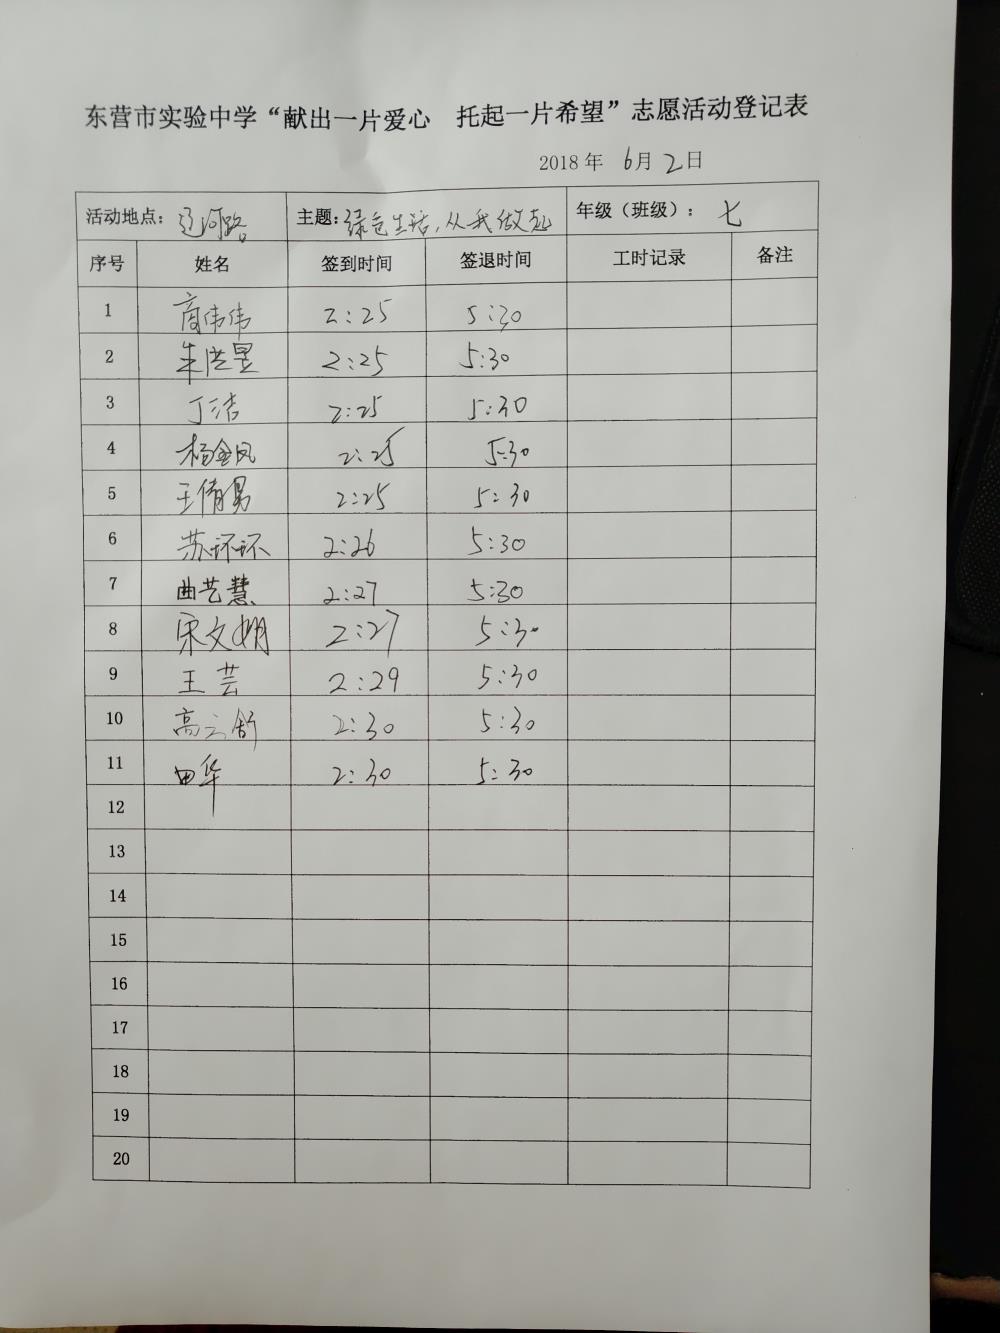 东营市实验中学“献出一片爱心 托起一片希望”志愿活动登记表
2018 年 6月 2日
活动地点：辽河路 主题：绿色生活，从我做起 年级（班级）：七
序号 姓名 签到时间 签退时间 工时记录 备注
1 商伟伟 2:25 5:30
2 朱洪昱 2:25 5:30
3 丁洁 2:25 5:30
4 杨金凤 2:25 5:30
5 王倩男 2:25 5:30
6 苏环环 2:26 5:30
7 曲艺慧 2:27 5:30
8 宋文娟 2:27 5:30
9 王芸 2:29 5:30
10 高云舒 2:30 5:30
11 田华 2:30 5:30
12
13
14
15
16
17
18
19
20